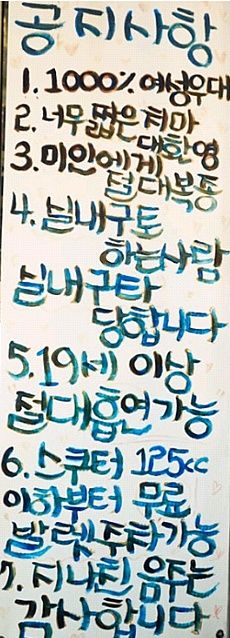 공지사항
1. 1000% 여성우대
2. 너무 짧은 치마
대환영
3. 미인에게
절대복종
4. 실내구토
하는사람
실내구타
당합니다
5. 19세 이상
절대흡연가능
6. 스쿠터 125cc
이하부터 무료
발렛주차가능
7. 지나친 음주는
감사합니다